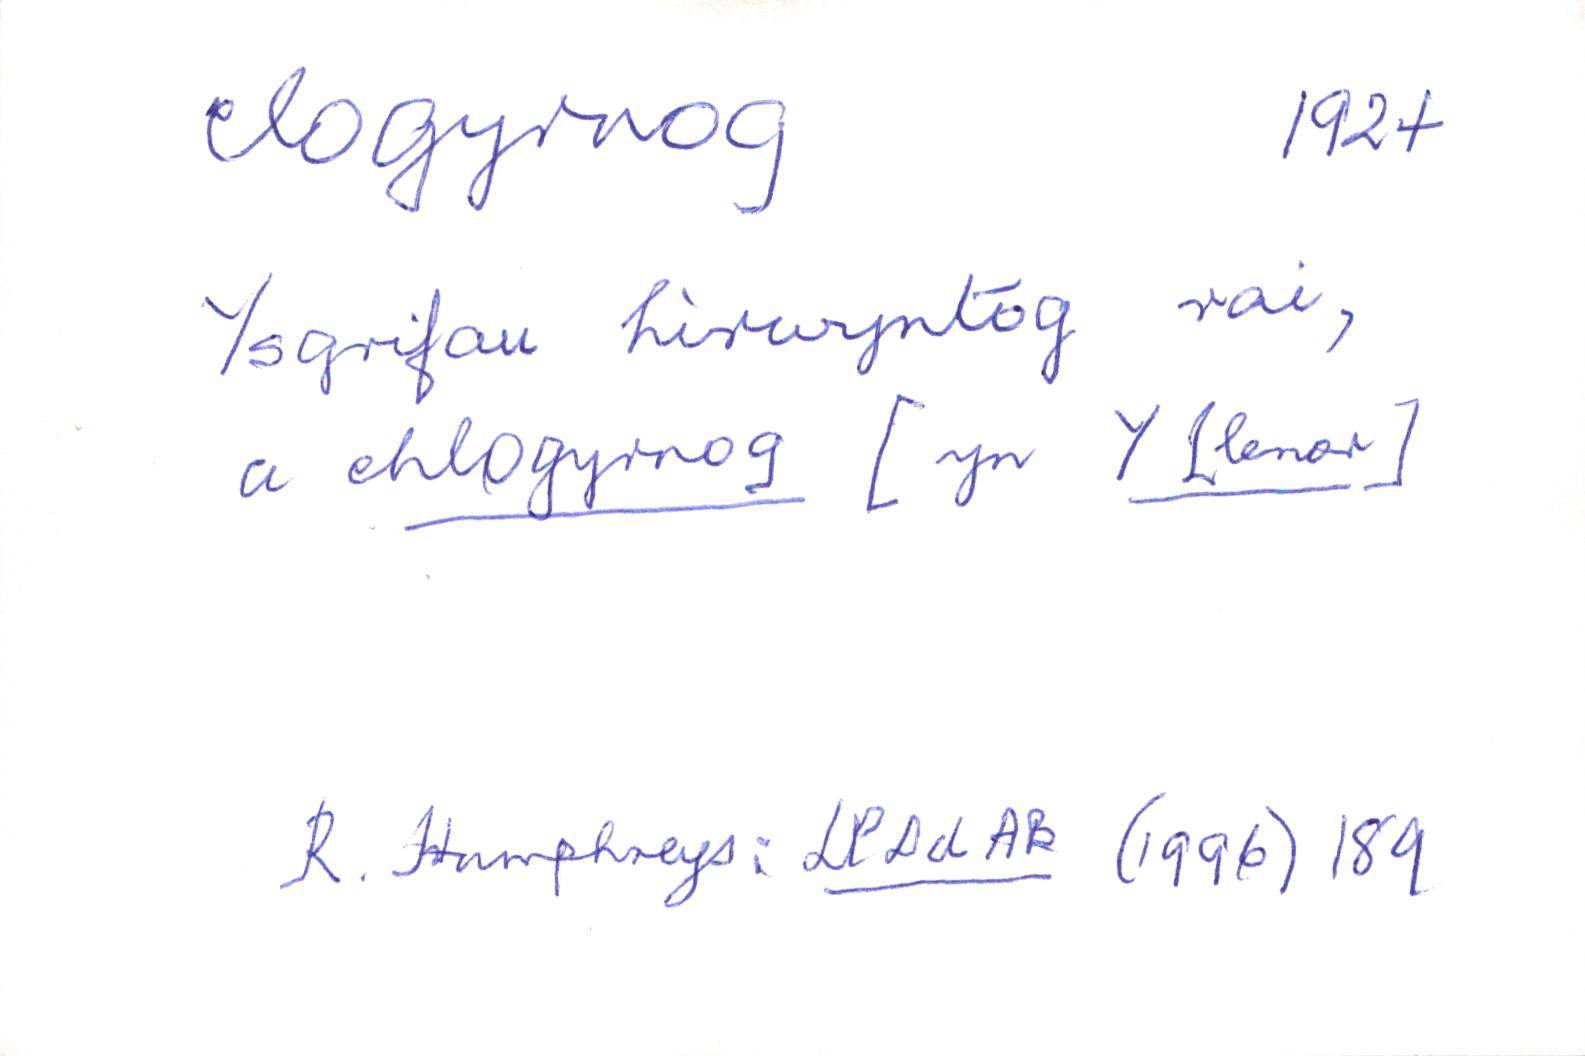 clogyrnog 1924
Ysgrifau hirwyntog rai,
a chlogyrnog [yn Y Llenor]
R. Humphreys: LPDdAB (1996) 189